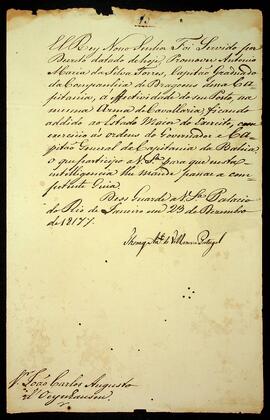 El Rey Nosso Senhor Foi Servido por
Decreto datado de hoje, Promover Antonio
Maria da Silva Torres, Capitão Graduado
da Companhia de Dragoens dessa Ca-
pitania, á effectividade do seu Posto, na
mesma Arma de Cavallaria ficando
addido ao Estado Maior do Exercito, com
exercicio ás ordens do Governador e Ca-
pitão General da Capitania da Bahia
o que participo a V. Sa. para que nesta
intelligencia lhe mande passar a com-
petente Guia.
Deos Guarde a V. Sa. Palacio
do Rio de Janeiro em 23 de Dezembro
de 1817.
Thomaz Anto. de Villanova Portugal
Sr. João Carlos Augusto
d'Oeynhausen